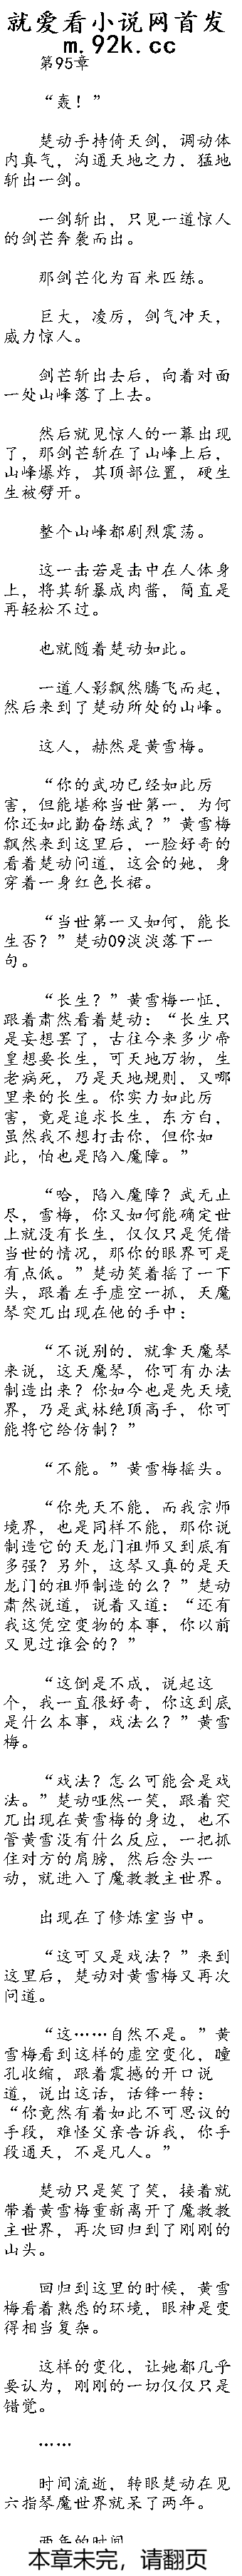 就爱看小说网首发
m.92k.cc
第95章
“轰！”
楚动手持倚天剑，调动体
内真气，沟通天地之力，猛地
斩出一剑。
一剑斩出，只见一道惊人
的剑芒奔袭而出。
那剑芒化为百米匹练。
巨大，凌厉，剑气冲天，
威力惊人。
剑芒斩出去后，向着对面
一处山峰落了上去。
然后就见惊人的一幕出现
了，那剑芒斩在了山峰上后，
山峰爆炸，其顶部位置，硬生
生被劈开。
整个山峰都剧烈震荡。
这一击若是击中在人体身
上，将其斩暴成肉酱，简直是
再轻松不过。
也就随着楚动如此。
一道人影飘然腾飞而起，
然后来到了楚动所处的山峰。
这人，赫然是黄雪梅。
“你的武功已经如此厉
害，但能堪称当世第一，为何
你还如此勤奋练武？”黄雪梅
飘然来到这里后，一脸好奇的
看着楚动问道，这会的她，身
穿着一身红色长裙。
“当世第一又如何，能长
生否？”楚动09淡淡落下一
句。
“长生？”黄雪梅一怔，
跟着肃然看着楚动：“长生只
是妄想罢了，古往今来多少帝
皇想要长生，可天地万物，生
老病死，乃是天地规则，又哪
里来的长生。你实力如此厉
害，竟是追求长生，东方白，
虽然我不想打击你，但你如
此，怕也是陷入魔障。”
“哈，陷入魔障？武无止
尽，雪梅，你又如何能确定世
上就没有长生，仅仅只是凭借
当世的情况，那你的眼界可是
有点低。”楚动笑着摇了一下
头，跟着左手虚空一抓，天魔
琴突兀出现在他的手中：
“不说别的，就拿天魔琴
来说，这天魔琴，你可有办法
制造出来？你如今也是先天境
界，乃是武林绝顶高手，你可
能将它给仿制？”
“不能。”黄雪梅摇头。
“你先天不能，而我宗师
境界，也是同样不能，那你说
制造它的天龙门祖师又到底有
多强？另外，这琴又真的是天
龙门的祖师制造的么？”楚动
肃然说道，说着又道：“还有
我这凭空变物的本事，你以前
又见过谁会的？”
“这倒是不成，说起这
个，我一直很好奇，你这到底
是什么本事，戏法么？”黄雪
梅。
“戏法？怎么可能会是戏
法。”楚动哑然一笑，跟着突
兀出现在黄雪梅的身边，也不
管黄雪没有什么反应，一把抓
住对方的肩膀，然后念头一
动，就进入了魔教教主世界。
出现在了修炼室当中。
“这可又是戏法？”来到
这里后，楚动对黄雪梅又再次
问道。
“这……自然不是。”黄
雪梅看到这样的虚空变化，瞳
孔收缩，跟着震撼的开口说
道，说出这话，话锋一转：
“你竟然有着如此不可思议的
手段，难怪父亲告诉我，你手
段通天，不是凡人。”
楚动只是笑了笑，接着就
带着黄雪梅重新离开了魔教教
主世界，再次回归到了刚刚的
山头。
回归到这里的时候，黄雪
梅看着熟悉的环境，眼神是变
得相当复杂。
这样的变化，让她都几乎
要认为，刚刚的一切仅仅只是
错觉。
……
时间流逝，转眼楚动在见
六指琴魔世界就呆了两年。
两年的时间
本章未完，请翻页